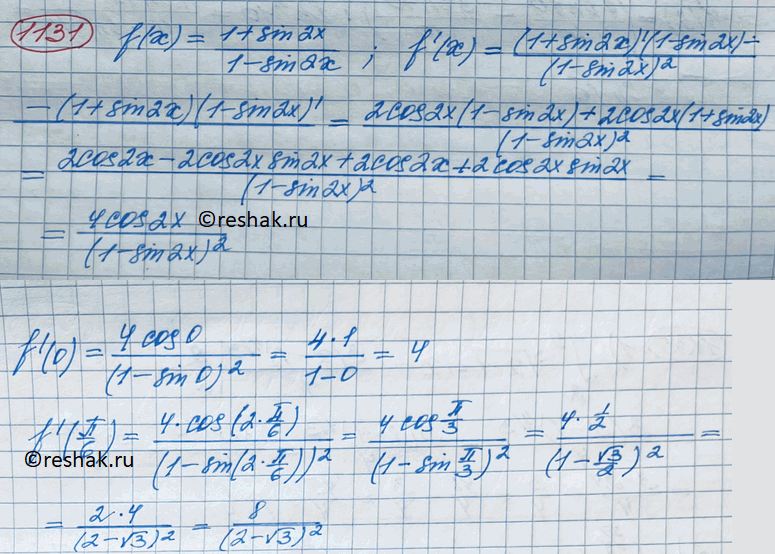 1131 f(x) = (1+sin2x)/(1−sin2x) ; f'(x) = ((1+sin2x)'(1−sin2x)−)/((1−sin2x)²)
(−(1+sin2x)(1−sin2x)')/ = (2cos2x(1−sin2x)+2cos2x(1+sin2x))/((1−sin2x)²)
= (2cos2x−2cos2x sin2x+2cos2x+2cos2x sin2x)/((1−sin2x)²) =
= (4cos2x)/((1−sin2x)²) ©reshak.ru
f'(0) = (4cos0)/((1−sin0)²) = (4·1)/(1−0) = 4
f'(π/6) = (4·cos(2·π/6))/((1−sin(2·π/6))²) = (4cos π/3)/((1−sin π/3)²) = (4·1/2)/((1−√3/2)²) =
©reshak.ru
= (2·4)/((2−√3)²) = 8/((2−√3)²)